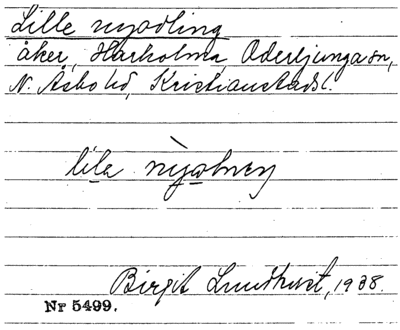 Lille nyodling
åker, Harholma, Oderljunga sn,
N. Åsbo hd, Kristianstads l.
Birgit Lundkvist, 1938.
Nr 5499.